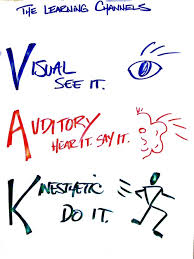 THE LEARNING CHANNELS
VISUAL
SEE IT.
AUDITORY
HEAR IT. SAY IT.
KINESTHETIC
DO IT.